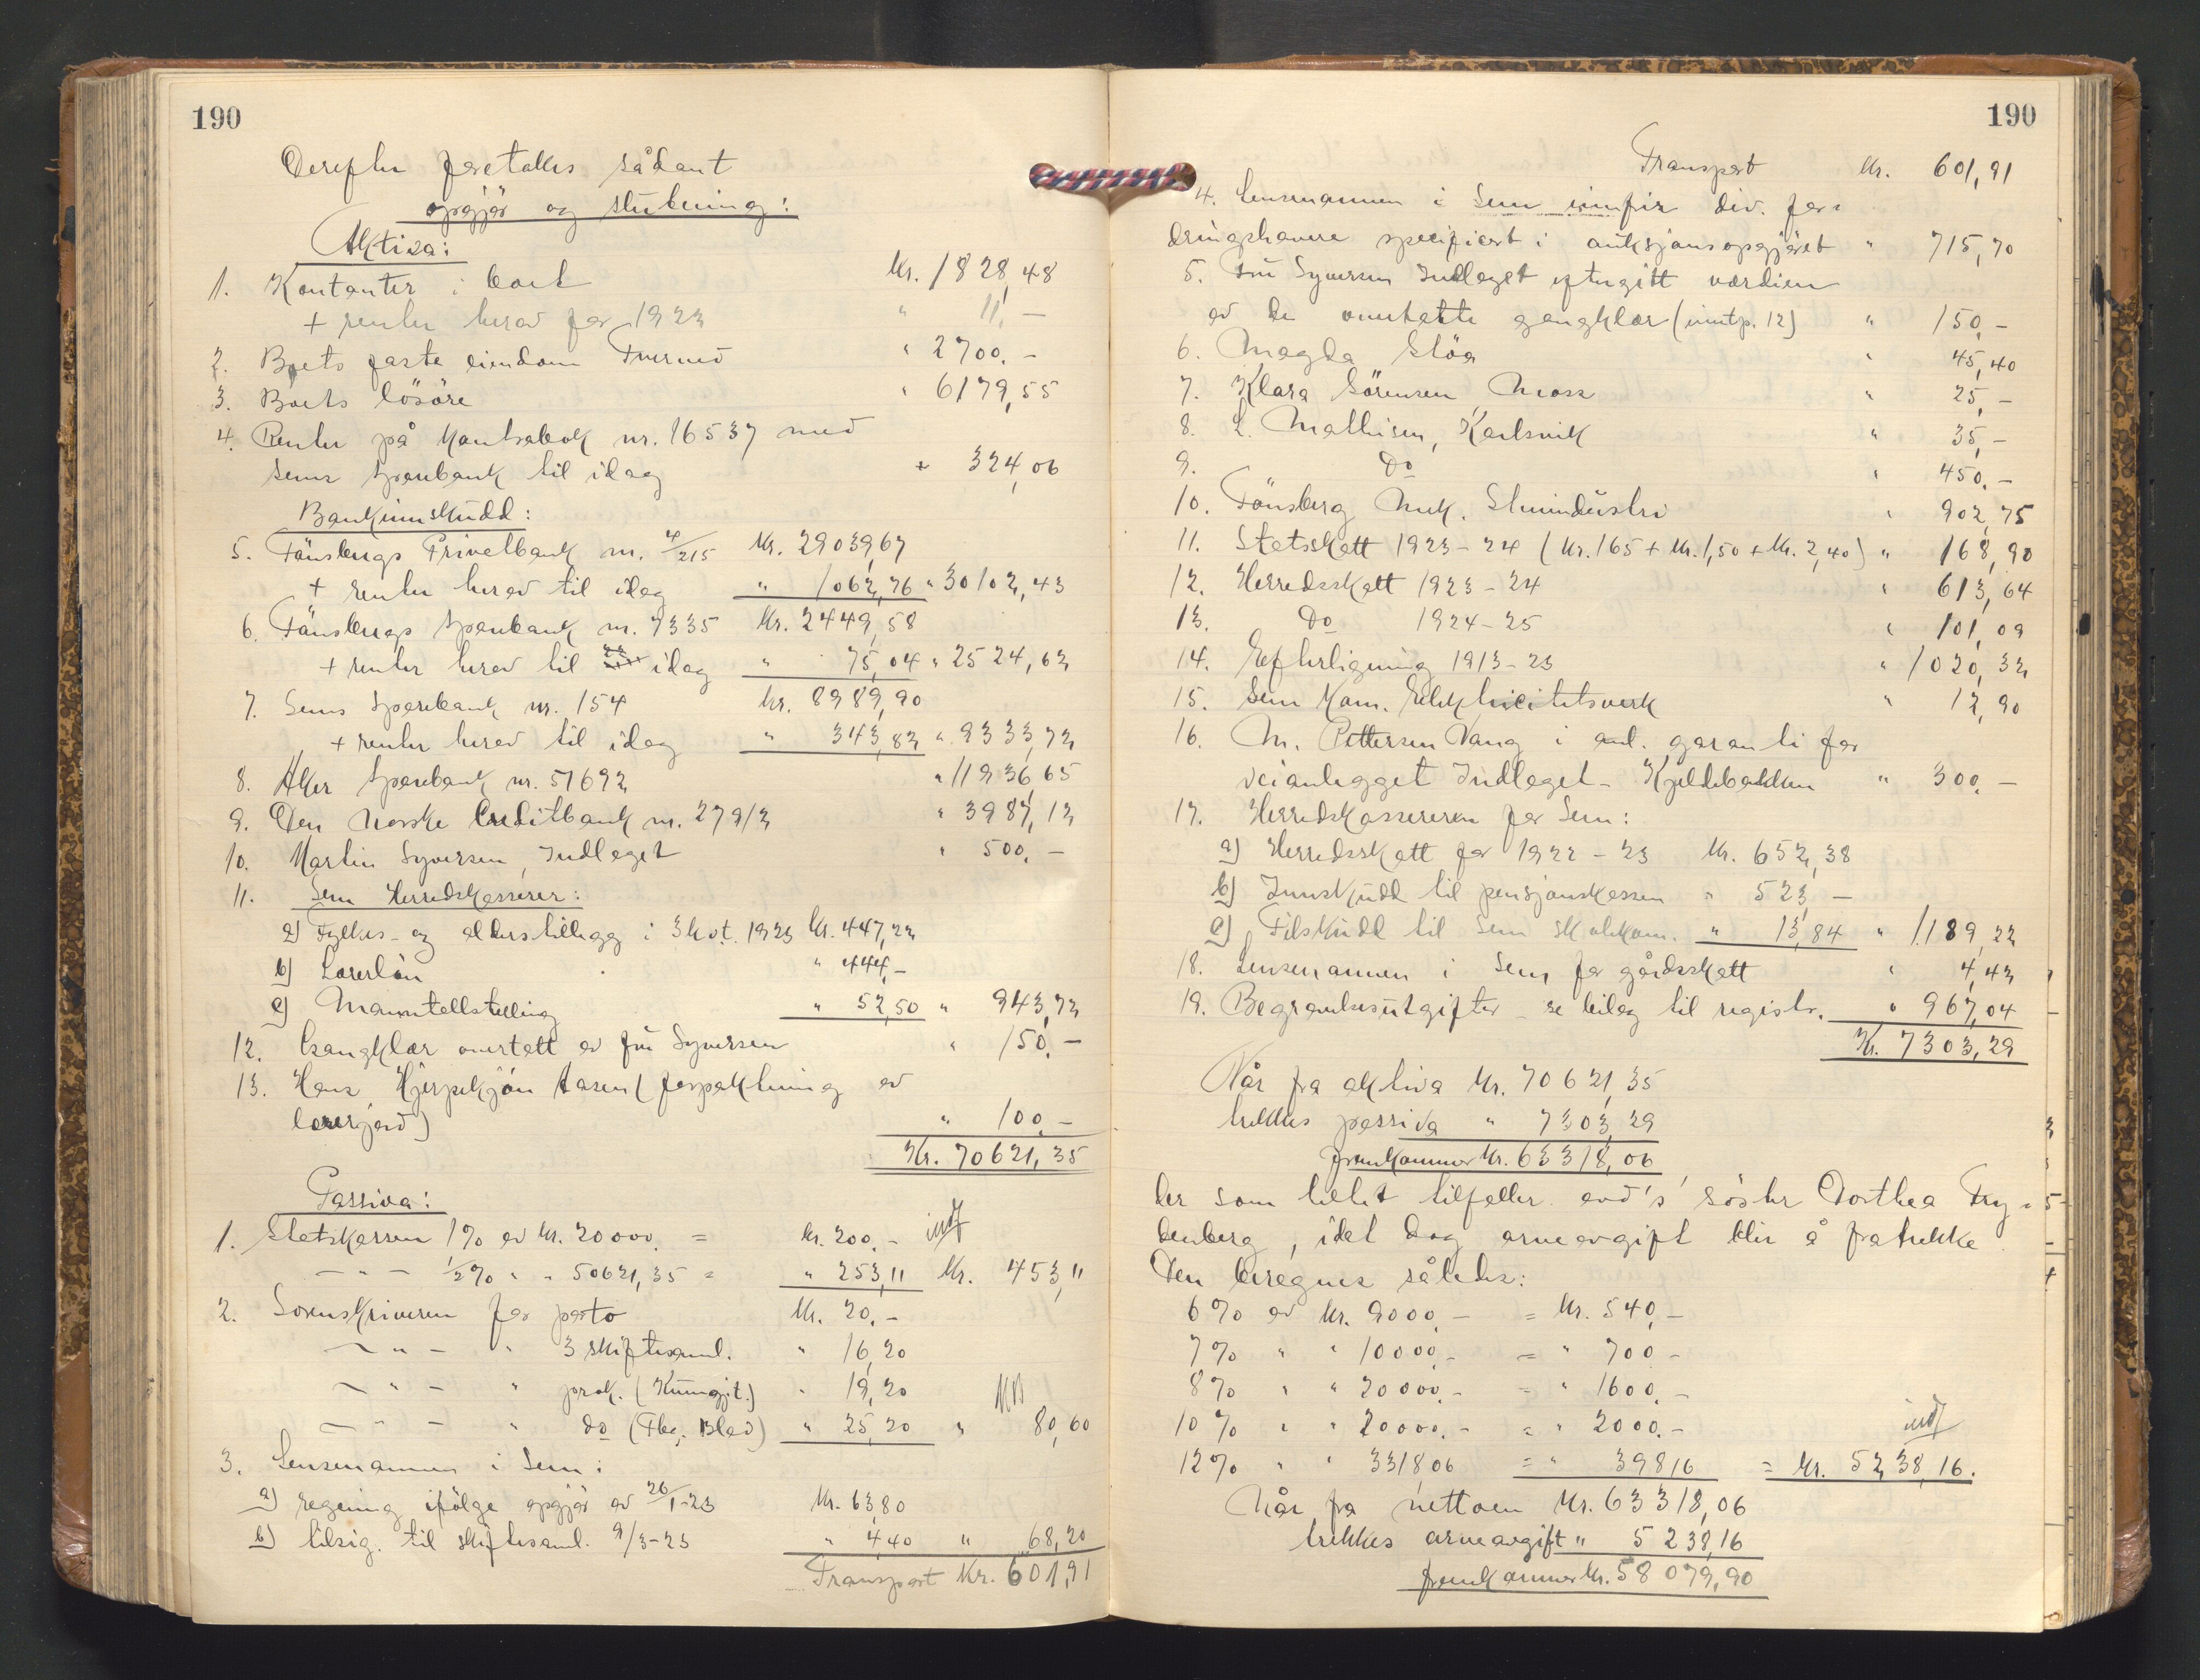 190
Derefter foretokes sådant
opgjør og slutning:
Aktiva:
1. Kontanter i boet Kr. 1828,48
+ renter herav for 1923 " 11,-
2. Boets faste eiendom " 2700.-
3. Boets lösöre " 6179,55
4. Renter på kontrabok nr. 16537 med
Sems Sparebank til idag + 324,06
Bankinnskudd:
5. Tönsbergs Privatbank nr. 4/215 Kr. 29039,67
+ renter herav til idag " 1062,76 " 30102,43
6. Tönsbergs Sparebank nr. 7335 Kr. 2449,58
+ renter herav til idag " 75,04 " 2524,62
7. Sems Sparebank nr. 154 Kr. 8989,90
+ renter herav til idag " 343,82 " 9333,72
8. Aker Sparebank nr. 51692 " 11936,65
9. Den Norske Creditbank nr. 27912 " 3987,12
10. Martin Syversen, Indlaget " 500.-
11. Sem Herredskasserer:
a) Fylkes- og alderstillegg i 3 kvt. 1923 Kr. 447,22
b) Lærerlön " 444,-
c) Manntallstelling " 52,50 " 943,72
12. Gangklær overtatt av fru Syversen " 150.-
13. Hans Hjerpekjön Aasen (forpaktning av
lærerjord) " 100.-
Kr. 70621,35
Passiva:
1. Statskassen 1% av Kr. 20000. = Kr. 200.-
-"- 1/2% " " 50621,35 = " 253,11 Kr. 453,11
2. Sorenskriveren for porto Kr. 20.-
-"- " 3 skiftesaml. " 16,20
-"- " prok. (Kunngjt.) " 19,20
-"- " do (Tbg. Blad) " 25,20 " 80,60
3. Lensmannen i Sem:
a) regning ifölge opgjör av 26/1-23 Kr. 63,80
b) tilsig. til skiftesaml. 9/3-23 " 4,40 " 68,20
Transport Kr. 601,91
190
Transport Kr. 601,91
4. Lensmannen i Sem div. for=
dringshavere specificert i auksjonsopgjöret " 715,70
5. Fru Syversen Indlaget eftergitt værdien
av de overtatte gangklær (inntp. 12) " 150.-
6. Magda Slöa " 45,40
7. Klara Sörensen Moss " 25,-
8. L. Mathisen, Karlsvik " 35,-
9. Do " 450.-
10. Tönsberg Mek. Stenindustri " 902,75
11. Statsskatt 1923-24 (Kr. 165 + Kr. 1,50 + Kr. 2,40) " 168,90
12. Herredsskatt 1923-24 " 613,64
13. Do 1924-25 " 101,09
14. Efterligning 1913-23 " 1020,32
15. Sem Kom. Elektricitetsverk " 12,90
16. M. Pettersen Vang i anl. garanti for
veianlegget Indlaget - Kjeldebakken " 300.-
17. Herredskassereren for Sem:
a) Herredsskatt for 1922-23 Kr. 652,38
b) Innskudd til pensjonskassen " 523,-
c) Tilskudd til Sem skolekom. " 13,84 " 1189,22
18. Lensmannen i Sem for gårdsskatt " 4,42
19. Begravelsesutgifter - se bilag til registr. " 967,04
Kr. 7303,29
Når fra aktiva Kr. 70621,35
trekkes passiva " 7303,29
fremkommer Kr. 63318,06
der som helhet tilfaller avd's söster Dorthea Fry=
denberg, idet dog arveavgift blir å fratrekke.
Den beregnes således:
6% av Kr. 9000.- = Kr. 540,-
7% " " 10000.- = " 700.-
8% " " 20000.- = " 1600.-
10% " " 20000.- = " 2000.-
12% " " 3318,06 = " 398,16 = Kr. 5238,16.
Når fra nettoen Kr. 63318,06
trekkes arveavgift " 5238,16
fremkommer Kr. 58079,90